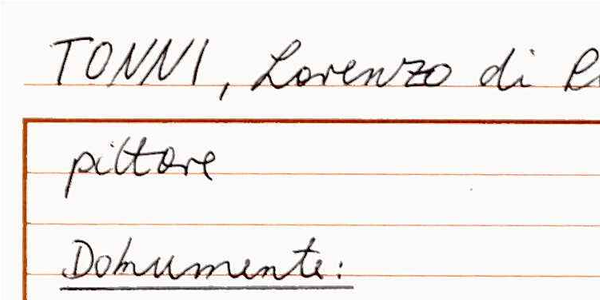 TONNI, Lorenzo di
pittore
Dokumente: